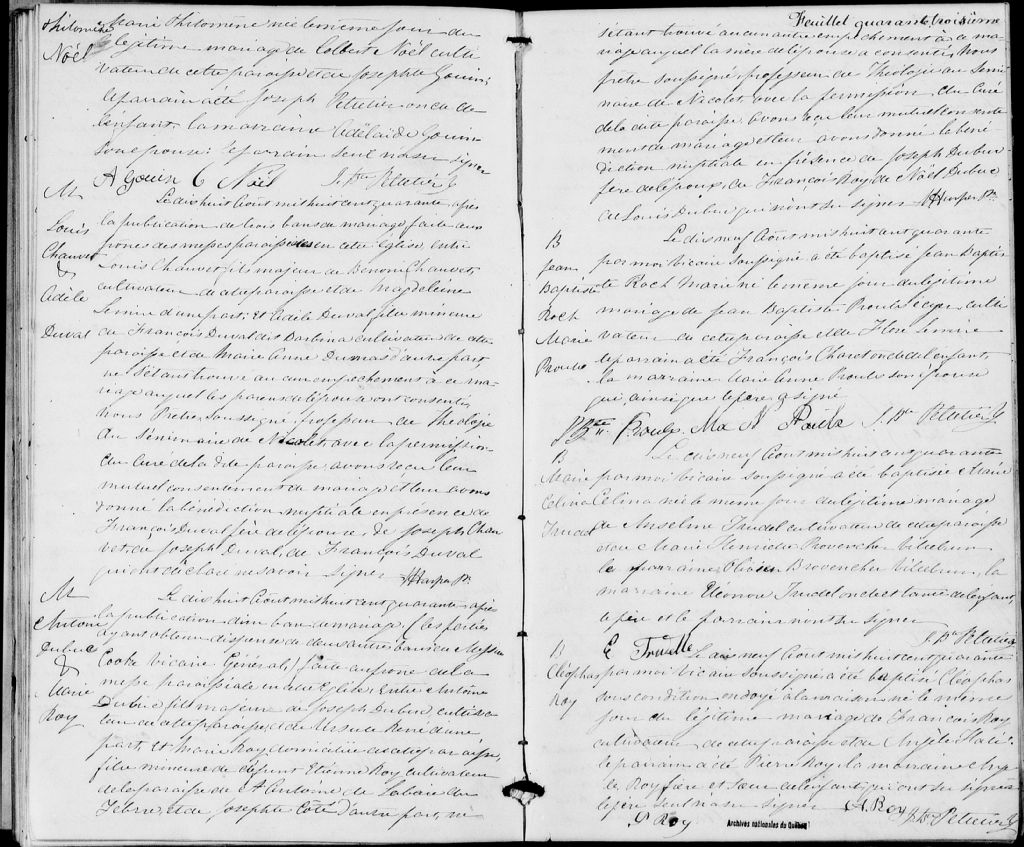 Philomène
Noël
Marie Philomène née le même jour du
légitime mariage de Colbert Noël culti
vateur de cette paroisse et de Josephte Gouin;
le parrain a été Joseph Peletier oncle de
l'enfant, la marraine Adélaïde Gouin
son épouse: le parrain seul n'a su signer
A Gouin C Noël J. Bte Peletier
M
Louis
Chauvet
&
Adèle
Duval
Le dix huit Août mil huit cent quarante, après
la publication de trois bans de mariage faite aux
prônes des messes paroissiales en cette Eglise, entre
Louis Chauvet, fils majeur de Benoni Chauvet
cultivateur de cette paroisse et de Magdeleine
Lemire d'une part; Et Adèle Duval fille mineure
de François Duval dit Barbina cultivateur de cette
paroisse et de Marie Anne Dumas d'autre part,
ne s'étant trouvé aucun empêchement à ce ma-
riage auquel les parens de l'épouse ont consenti,
Nous Prêtre, soussigné, professeur de Théologie
au Séminaire de Nicolet, avec la permission
du Curé de la dite paroisse, avons reçu leur
mutuel consentement de mariage et leur avons
donné la bénédiction nuptiale en présence de
François Duval père de l'épouse, de Joseph Chau
vet, de Joseph Duval, de François Duval
qui ont déclaré ne savoir signer Harper Ptr.
M
Antoine
Dubuc
&
Marie
Roy
Le dix huit Août mil huit cent quarante, après
la publication d'un ban de mariage, (les parties
ayant obtenu dispense de deux autres bans de Messire
Cooke Vicaire Général) faite au prône de la
messe paroissiale en cette Eglise, Entre Antoine
Dubuc fils majeur de Joseph Dubuc, cultiva-
teur de cette paroisse, et de Ursule René d'une
part, Et Marie Roy domiciliée de cette paroisse,
fille mineure de défunt Etienne Roy cultivateur
de la paroisse de St Antoine de la Baie du
Febvre, et de Josephte Côté d'autre part, ne
Feuillet quarante troisième
s'étant trouvé aucun autre empêchement à ce ma
riage auquel la mère de l'épouse a consenti, Nous
prêtre soussigné, professeur de Théologie au Sémi
naire de Nicolet, avec la permission du Curé
de la dite paroisse, avons reçu leur mutuel consente
ment de mariage et leur avons donné la béné
diction nuptiale en présence de Joseph Dubuc
père de l'époux, de François Roy, de Noël Dubuc
de Louis Dubuc qui n'ont su signer Harper Ptr.
B
Jean
Baptiste
Roch
Marie
Proulx
Le dix neuf Août mil huit cent quarante
par moi vicaire soussigné a été baptisé Jean Baptis
te Roch Marie né le même jour du légitime
mariage de Jean Baptiste Proulx Ecuyer culti
vateur de cette paroisse et de Flore Lemire
le parrain a été François
la marraine Marie Anne Proulx son épouse
qui, ainsi que le père a signé
J Bte Proulx Ma N Proulx J. Bte Peletier
B
Marie
Celina
Trudel
Le dix neuf Août mil huit cent quarante
par moi vicaire soussigné a été baptisée Marie
Celina née le même jour du légitime mariage
de Anselme Trudel cultivateur de cette paroisse
et de Marie Provencher Villebrun
le parrain Olivier Provencher Villebrun, la
marraine Eléonore Trudel oncle et tante de l'enfant,
le père et le parrain n'ont su signer
E Trudelle J. Bte Peletier
B
Cléophas
Roy
Le dix neuf Août mil huit cent quarante
par moi vicaire soussigné a été baptisé Cléophas
sous condition, ondoyé à la maison né le même
jour du légitime mariage de François Roy
cultivateur de cette paroisse et de Angèle
le parrain a été Pierre Roy, la marraine Angè
le Roy frère et sœur de l'enfant, qui ont su signer
le père seul n'a su signer A. Roy
P Roy J. Bte Peletier
Archives nationales du Québec